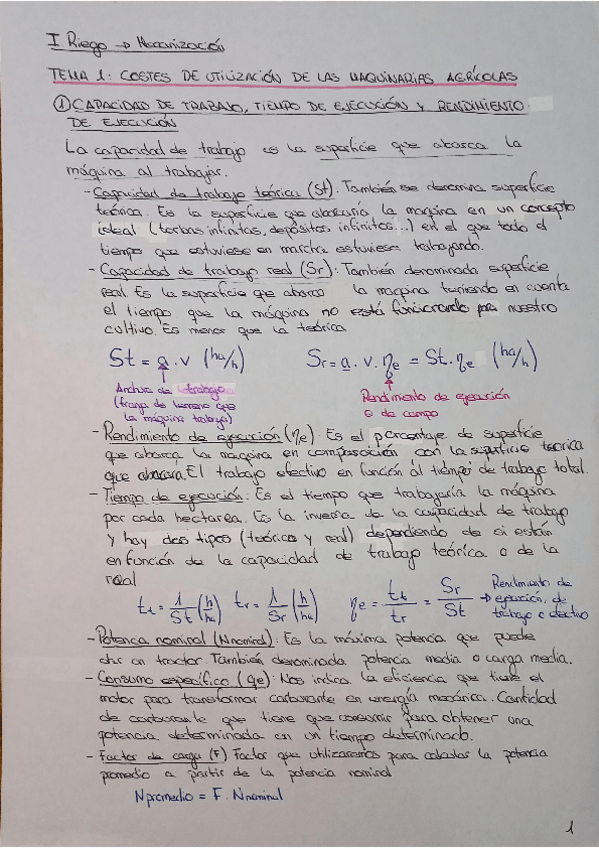 I Riego → Mecanización
TEMA 1: COSTES DE UTILIZACIÓN DE LAS MAQUINARIAS AGRÍCOLAS
① CAPACIDAD DE TRABAJO, TIEMPO DE EJECUCIÓN Y RENDIMIENTO
DE EJECUCIÓN
La capacidad de trabajo es la superficie que abarca la
máquina al trabajar.
- Capacidad de trabajo teórica (St). También se denomina superficie
teórica. Es la superficie que abarcaría la maquina en un concepto
ideal (tolvas infinitas, depósitos infinitos...) en el que todo el
tiempo que estuviese en marcha estuviese trabajando.
- Capacidad de trabajo real (Sr): También denominada superficie
real. Es la superficie que abarca la maquina teniendo en cuenta
el tiempo que la máquina no está funcionando para nuestro
cultivo. Es menor que la teórica
St = a . v (ha/h) Sr = a . v . ηe = St . ηe (ha/h)
Anchura de trabajo
(franja de terreno que
la máquina trabaja)
Rendimiento de ejecución
o de campo
- Rendimiento de ejecución (ηe): Es el porcentaje de superficie
que abarca la maquina en comparación con la superficie teorica
que abarcará. El trabajo efectivo en función al tiempo de trabajo total.
- Tiempo de ejecución: Es el tiempo que trabajaría la máquina
por cada hectarea. Es la inversa de la capacidad de trabajo
y hay dos tipos (teórico y real) dependiendo de si están
en función de la capacidad de trabajo teórica o de la
real
tt = 1/St (h/ha) tr = 1/Sr (h/ha) ηe = tt/tr = Sr/St → Rendimiento de
ejecución, de
trabajo o efectivo
- Potencia nominal (Nnominal): Es la máxima potencia que puede
dar un tractor. También denominada potencia media o carga media.
- Consumo específico (qe): Nos indica la eficiencia que tiene el
motor para transformar carburante en energía mecánica. Cantidad
de carburante que tiene que consumir para obtener una
potencia determinada en un tiempo determinado.
- Factor de carga (F) Factor que utilizaremos para calcular la potencia
promedio a partir de la potencia nominal
Npromedio = F . Nnominal
1